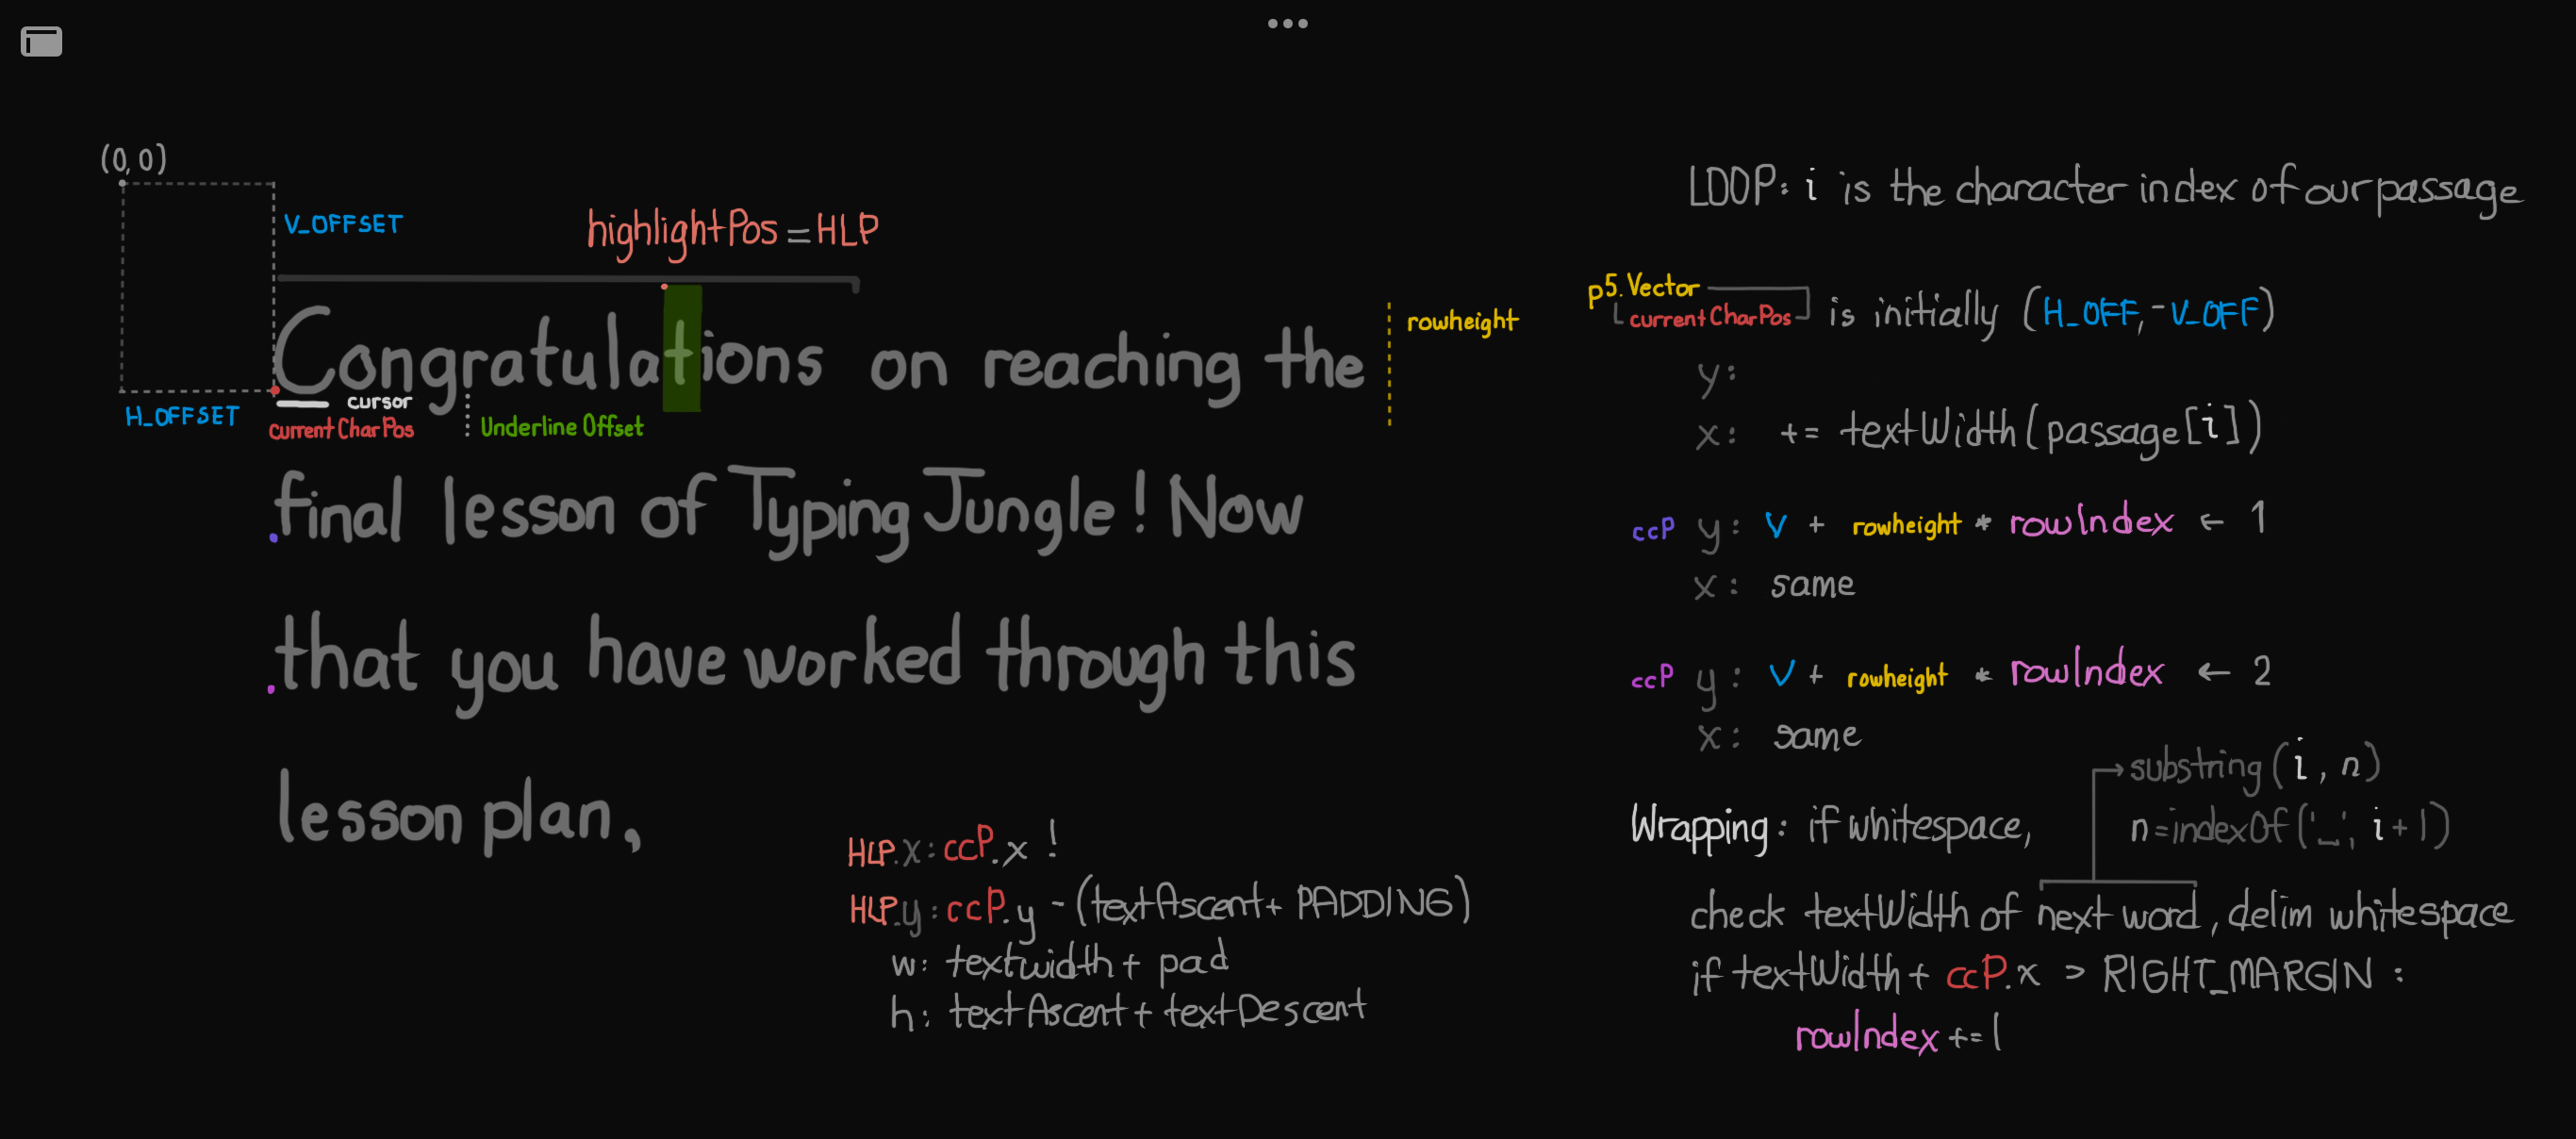 (0,0)
V_OFFSET
highlightPos = HLP
Congratulations on reaching the
rowheight
cursor
H_OFFSET
currentCharPos
Underline Offset
final lesson of Typing Jungle! Now
that you have worked through this
lesson plan,
HLP.x: ccP.x !
HLP.y: ccP.y - (textAscent + PADDING)
w: textwidth + pad
h: textAscent + textDescent
LOOP: i is the character index of our passage
p5.Vector
currentCharPos is initially (H_OFF, -V_OFF)
y:
x: += textWidth(passage[i])
ccP y: V + rowheight * rowIndex ← 1
x: same
ccP y: V + rowheight * rowIndex ← 2
x: same
substring(i, n)
Wrapping: if whitespace,
n=indexOf('_', i+1)
check textWidth of next word, delim whitespace
if textWidth + ccP.x > RIGHT_MARGIN:
rowIndex += 1